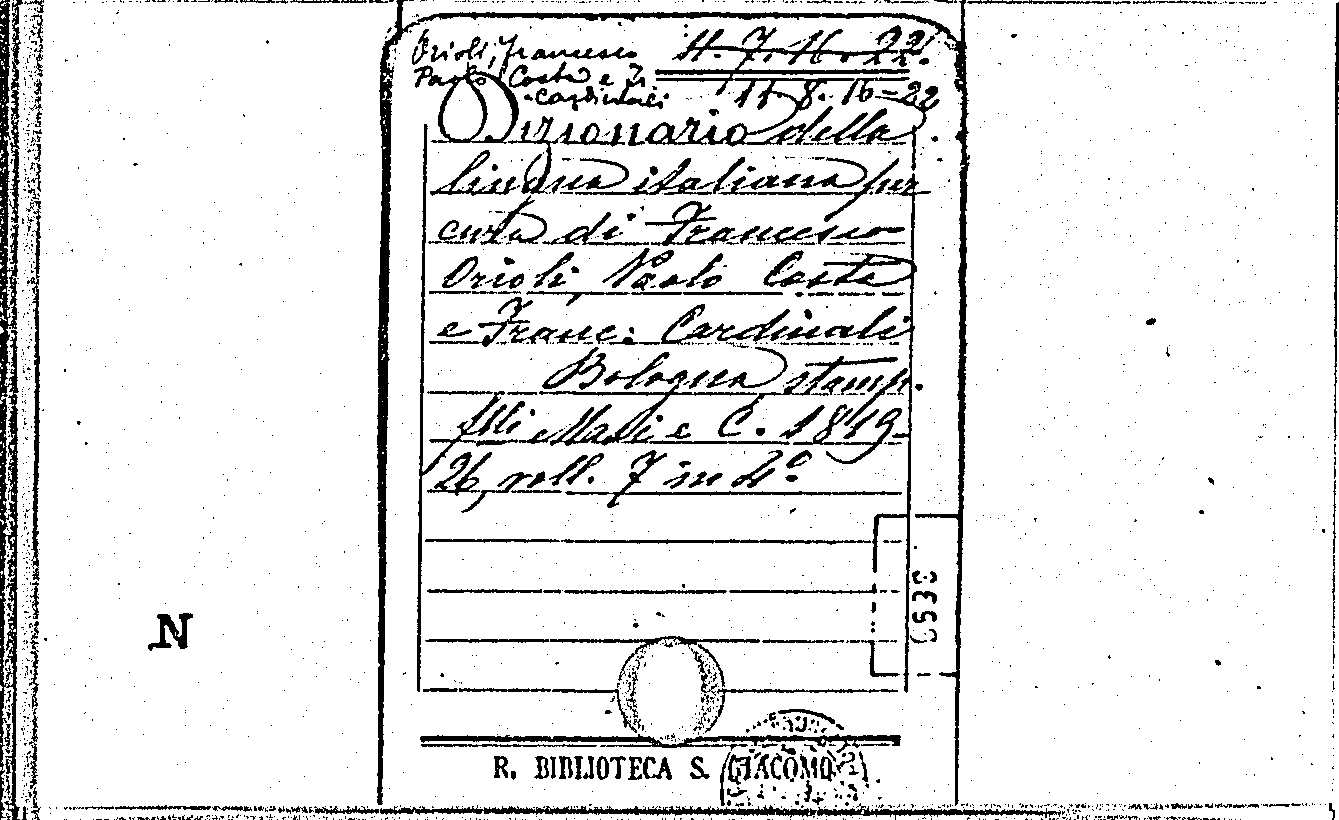 Orioli, Francesco
H. 7. H. 22.
Paolo Costa e Fr.
Cardinali
H. 8. 16-22
Dizionario della
lingua italiana per
cura di Francesco
Orioli, Paolo Costa
e Franc: Cardinali
Bologna, stamp.
flli Masi e C. 1819-
26, voll. 7 in 4º
N
R. BIBLIOTECA S. GIACOMO